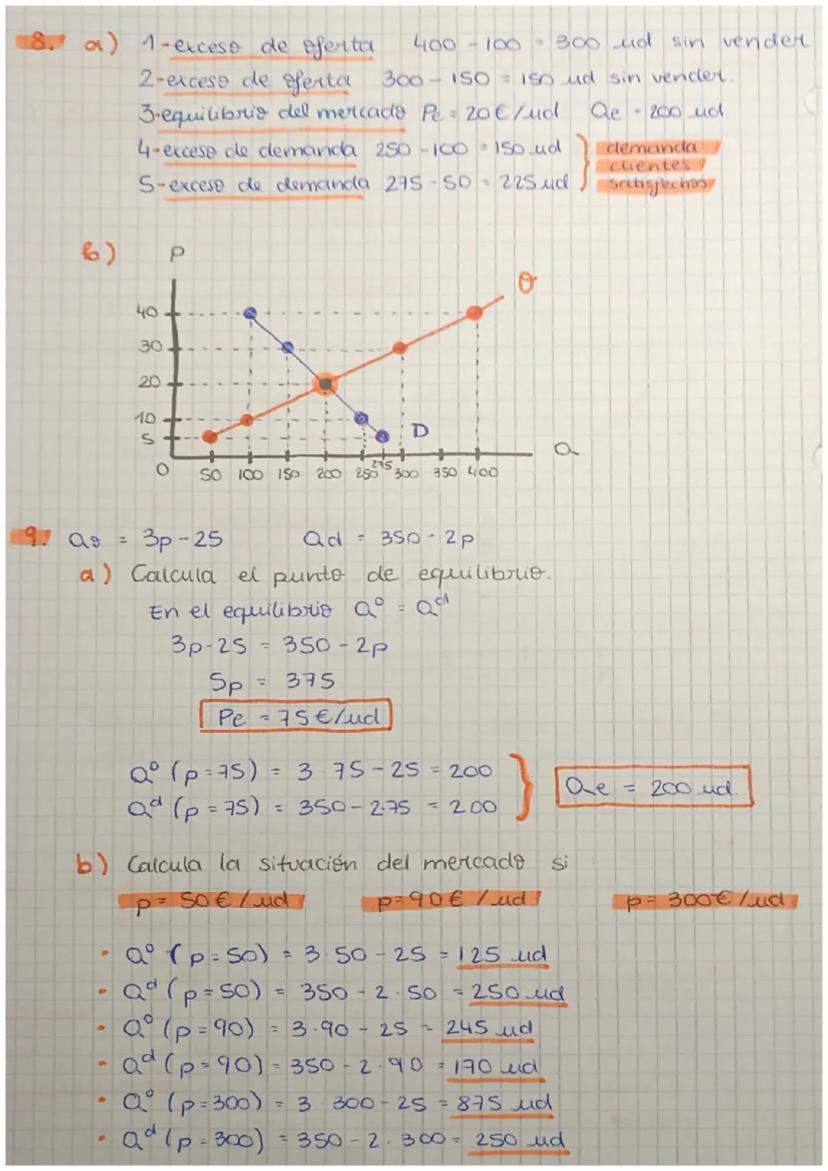 8. a) 1-exceso de oferta 400 - 100 = 300 ud sin vender
2-exceso de oferta 300 - 150 = 150 ud sin vender.
3-equilibrio del mercado Pe = 20€/ud Qe = 200 ud
4-exceso de demanda 250 - 100 = 150 ud } demanda
clientes
5-exceso de demanda 275 - 50 = 225 ud satisfechos
b) P
O
40
30
20
10
5
D
Q
0 50 100 150 200 250 275 300 350 400
9. Qo = 3p - 25 Qd = 350 - 2p
a) Calcula el punto de equilibrio.
En el equilibrio Qº = Qd
3p - 25 = 350 - 2p
5p = 375
Pe = 75€/ud
Qº (p=75) = 3·75 - 25 = 200
Qe = 200 ud.
Qd (p=75) = 350 - 2·75 = 200
b) Calcula la situación del mercado si
p = 50€/ud p = 90€/ud p = 300€/ud
• Qº (p=50) = 3·50 - 25 = 125 ud
• Qd (p=50) = 350 - 2·50 = 250 ud
• Qº (p=90) = 3·90 - 25 = 245 ud
• Qd (p=90) = 350 - 2·90 = 170 ud
• Qº (p=300) = 3·300 - 25 = 875 ud
• Qd (p=300) = 350 - 2·300 = 250 ud